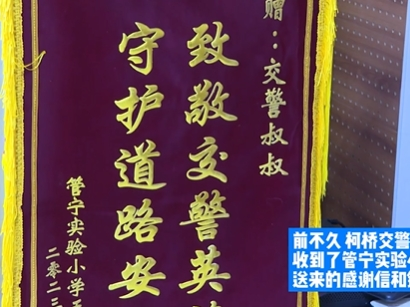 赠:交警叔叔
致敬交警英
守护道路安
管宁实验小学
二〇二三
前不久 柯桥交警
收到了管宁实验
送来的感谢信和